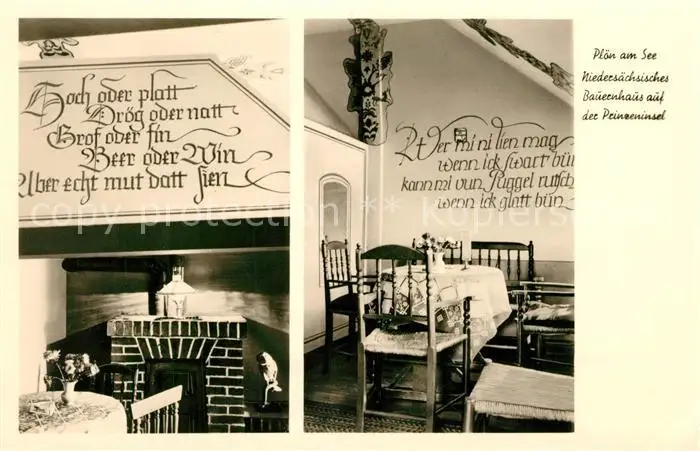 Hoch oder platt
Drög oder natt
Grof oder fin
Beer oder Win
Aber echt mut datt sien
Wer mi ni lien mag
wenn ick swart bün
kann mi vun Puggel rutsch
wenn ick glatt bün
Plön am See
Niedersächsisches
Bauernhaus auf
der Prinzeninsel
copy protection ** copy by kpers